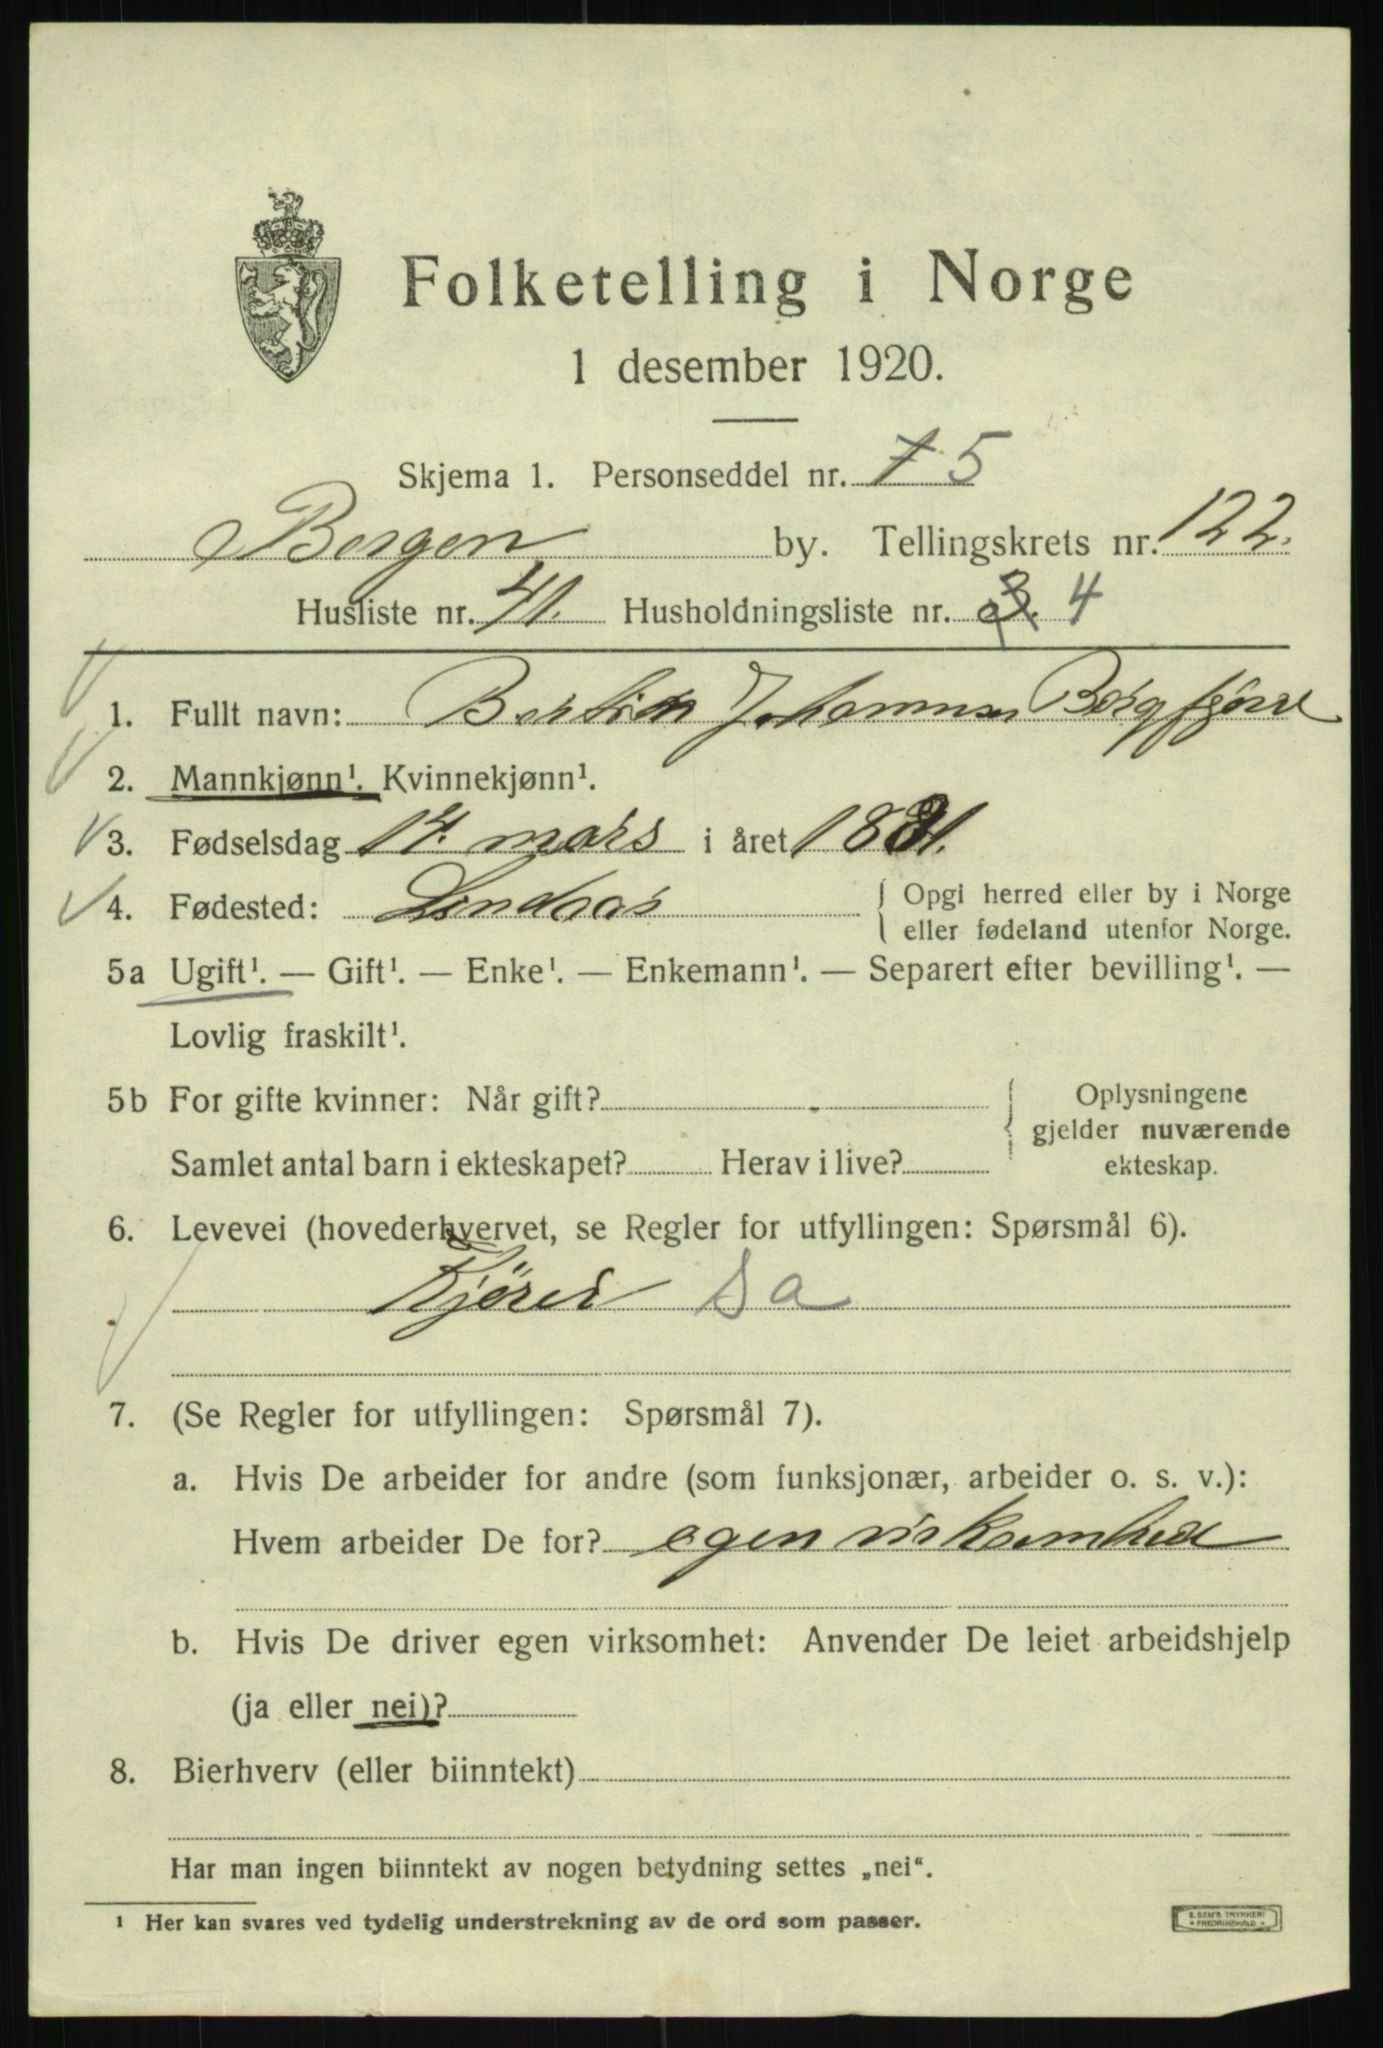 Folketelling i Norge
1 desember 1920.
Skjema 1. Personseddel nr. 1 5
Bergen by. Tellingskrets nr. 122.
Husliste nr. 41. Husholdningsliste nr. 3. 4
1. Fullt navn: Johannes
2. Mannkjønn¹. Kvinnekjønn¹.
3. Fødselsdag 14. mars i året 1881.
4. Fødested: Lindaas { Opgi herred eller by i Norge
eller fødeland utenfor Norge.
5a Ugift¹. — Gift¹. — Enke¹. — Enkemann¹. — Separert efter bevilling¹. —
Lovlig fraskilt¹.
5b For gifte kvinner: Når gift? { Oplysningene
gjelder nuværende
Samlet antal barn i ekteskapet? Herav i live? ekteskap.
6. Levevei (hovederhvervet, se Regler for utfyllingen: Spørsmål 6).
Kjører a
7. (Se Regler for utfyllingen: Spørsmål 7).
a. Hvis De arbeider for andre (som funksjonær, arbeider o. s. v.):
Hvem arbeider De for? egen virksomhed
b. Hvis De driver egen virksomhet: Anvender De leiet arbeidshjelp
(ja eller nei)?
8. Bierhverv (eller biinntekt)
Har man ingen biinntekt av nogen betydning settes „nei“.
¹ Her kan svares ved tydelig understrekning av de ord som passer.
E. SEM'S TRYKKERI
• FREDRIKSHALD •